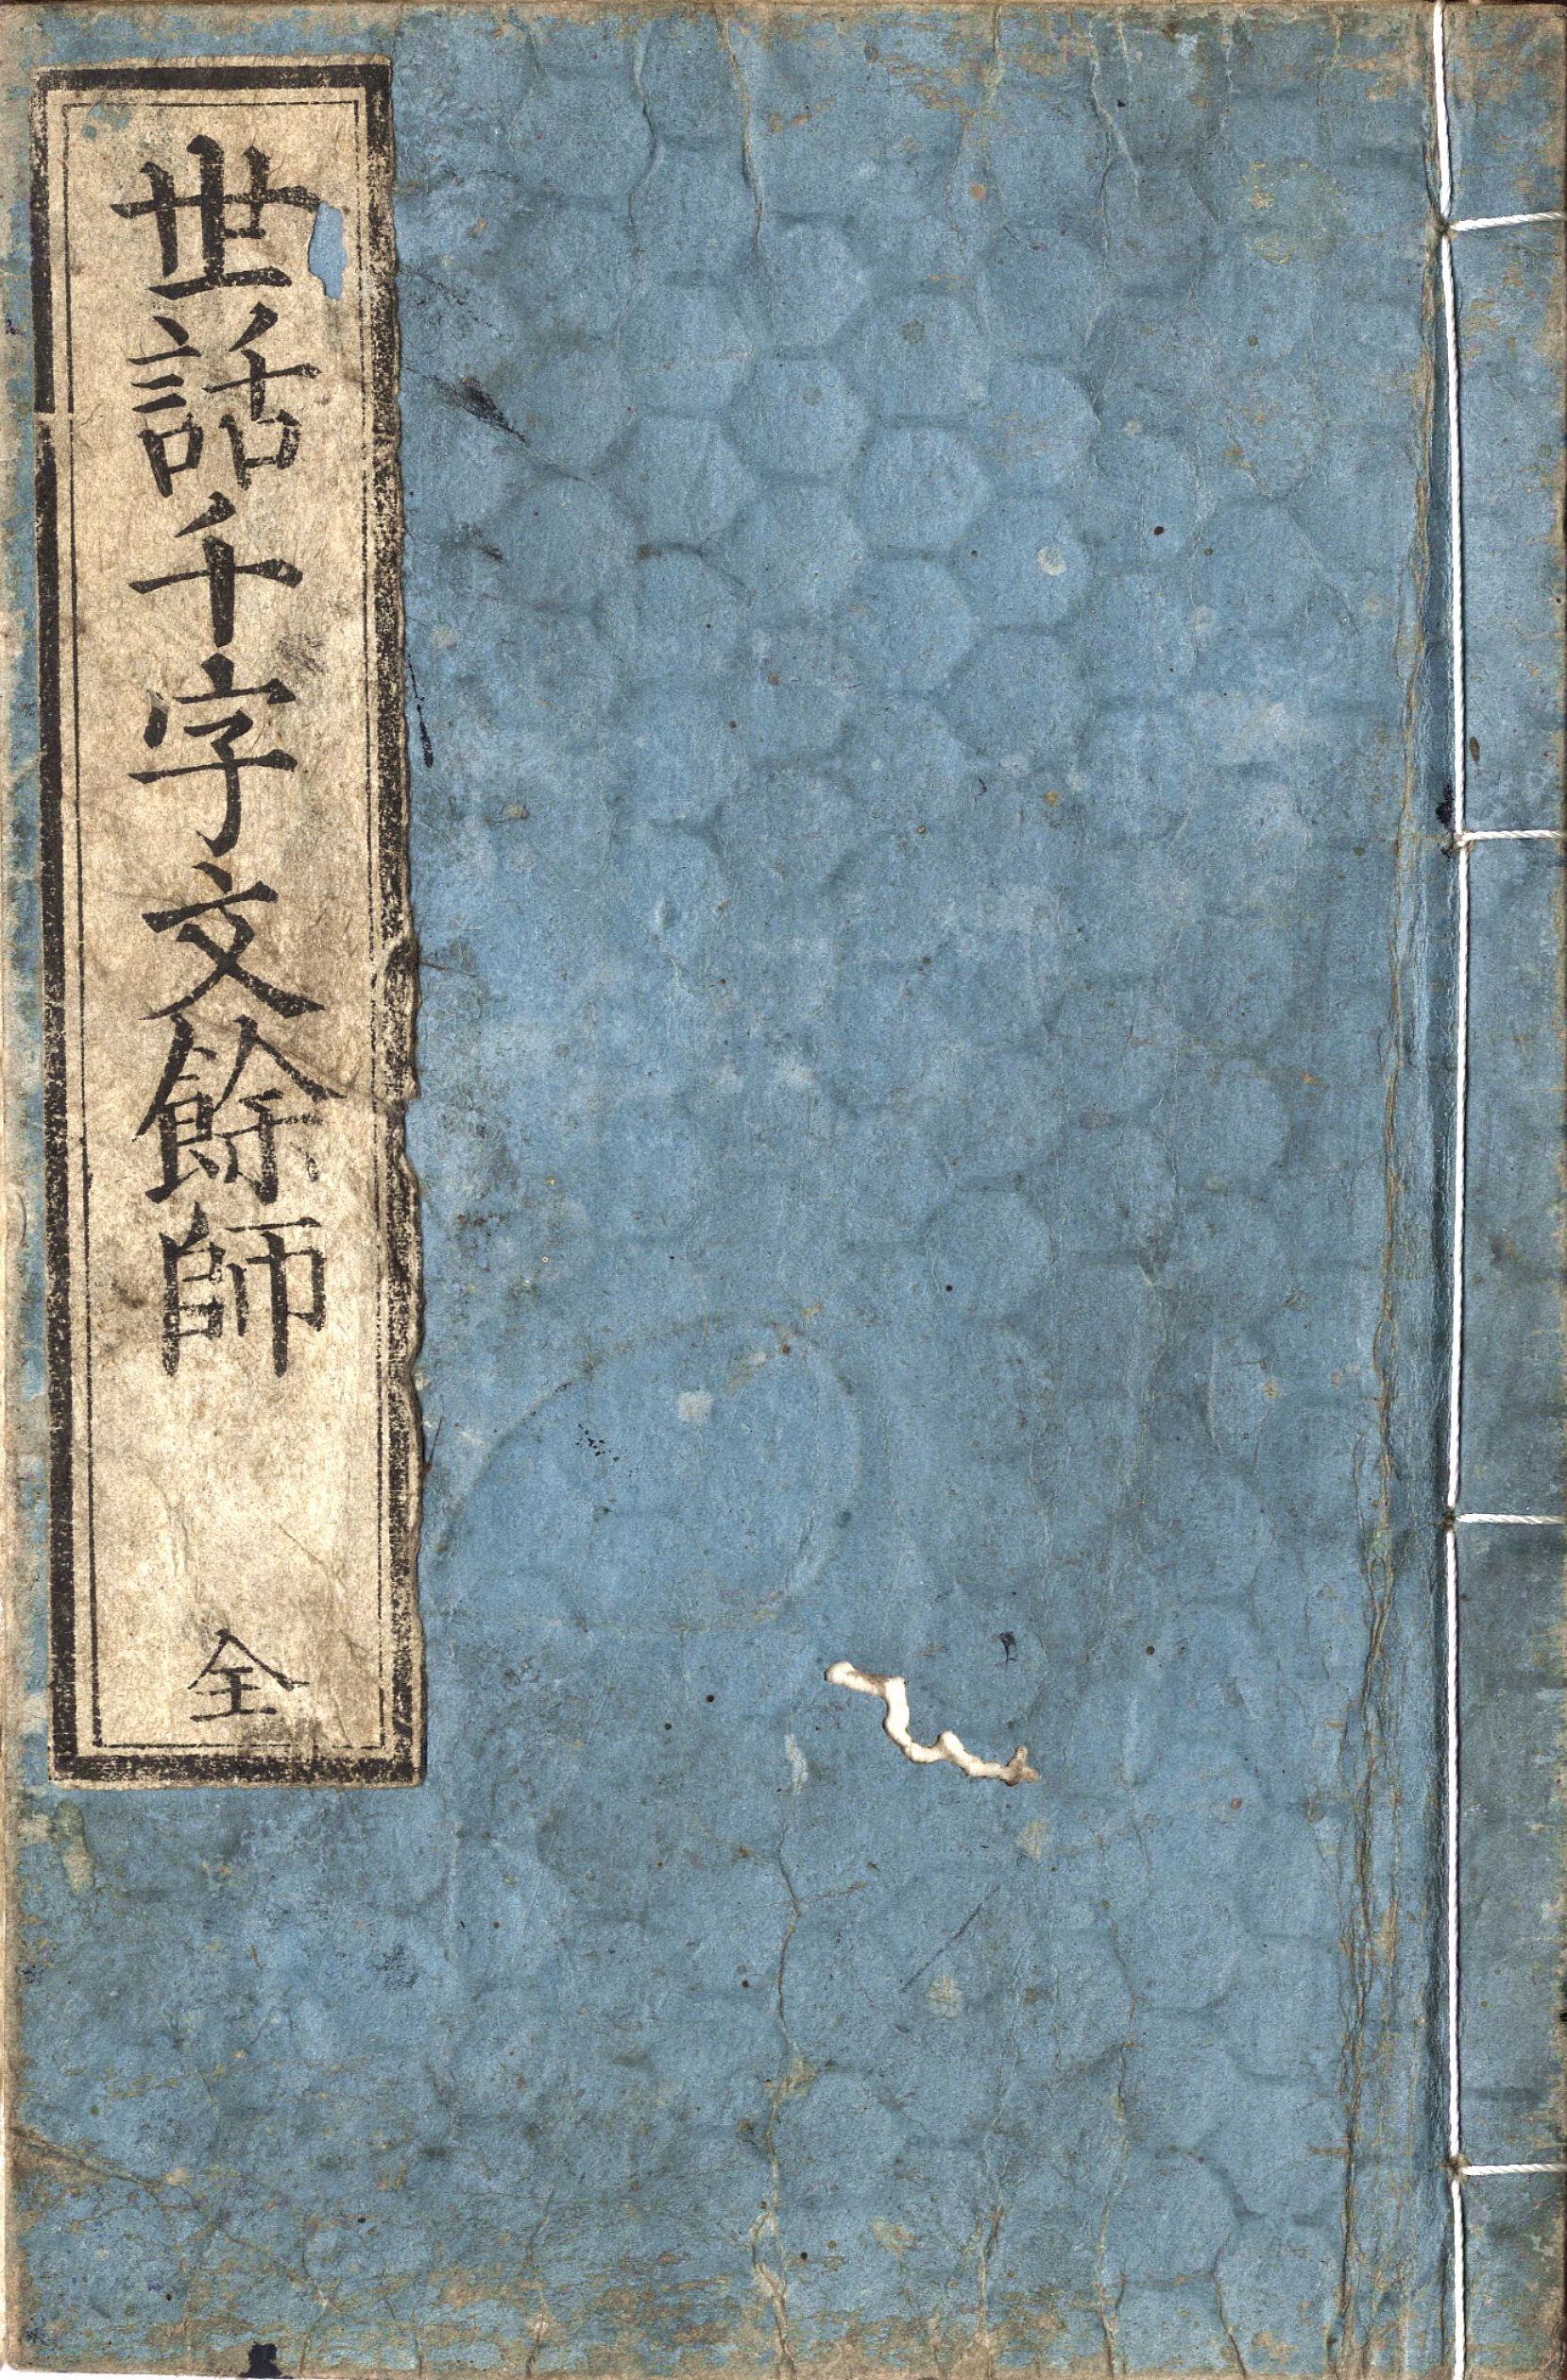 世話千字文餘師
全